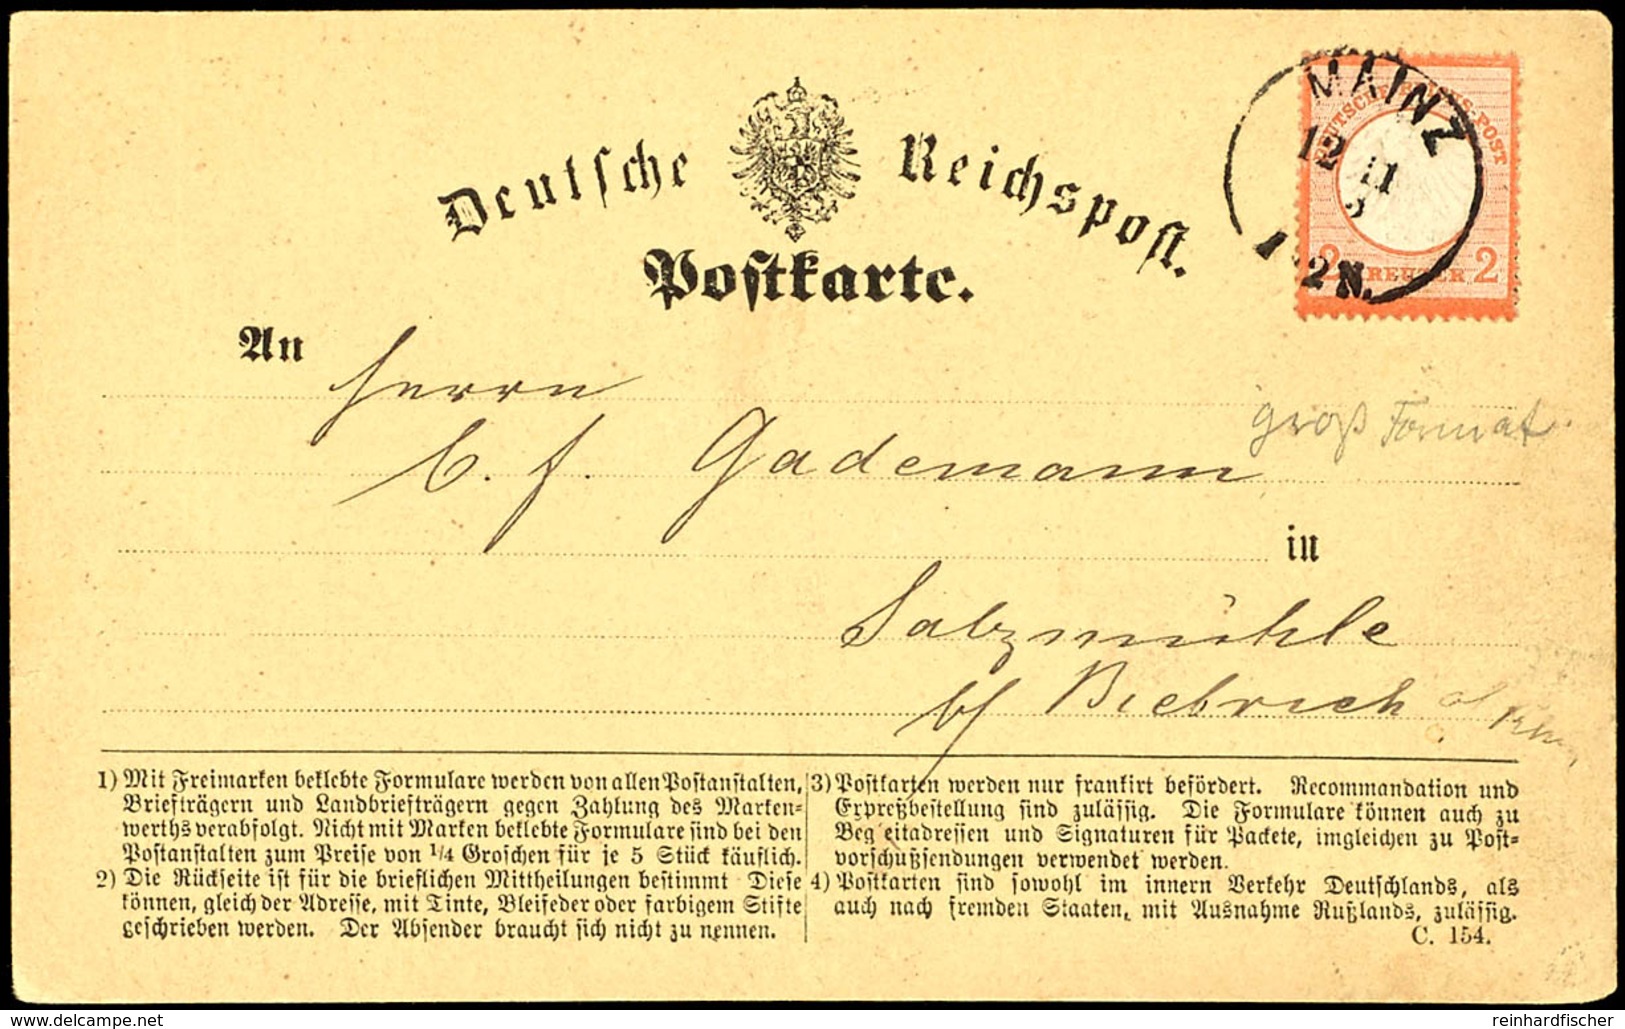 Deutsche Reichspost.
Postkarte.
MAINZ
12 11
1-2N.
DEUTSCHE REICHS-POST
2 KREUZER 2
An
Herrn
C. F. Gademann
groß Format.
in
Salzmühle
b/ Biebrich
1) Mit Freimarken beklebte Formulare werden von allen Postanstalten,
Briefträgern und Landbriefträgern gegen Zahlung des Marken-
werths verabfolgt. Nicht mit Marken beklebte Formulare sind bei den
Postanstalten zum Preise von 1/4 Groschen für je 5 Stück käuflich.
2) Die Rückseite ist für die brieflichen Mittheilungen bestimmt Diese
können, gleich der Adresse, mit Tinte, Bleifeder oder farbigem Stifte
geschrieben werden. Der Absender braucht sich nicht zu nennen.
3) Postkarten werden nur frankirt befördert. Recommandation und
Expreßbestellung sind zulässig. Die Formulare können auch zu
Beg eitadressen und Signaturen für Packete, imgleichen zu Post-
vorschußsendungen verwendet werden.
4) Postkarten sind sowohl im innern Verkehr Deutschlands, als
auch nach fremden Staaten, mit Ausnahme Rußlands, zulässig.
C. 154.
www.delcampe.net
reinhardfischer